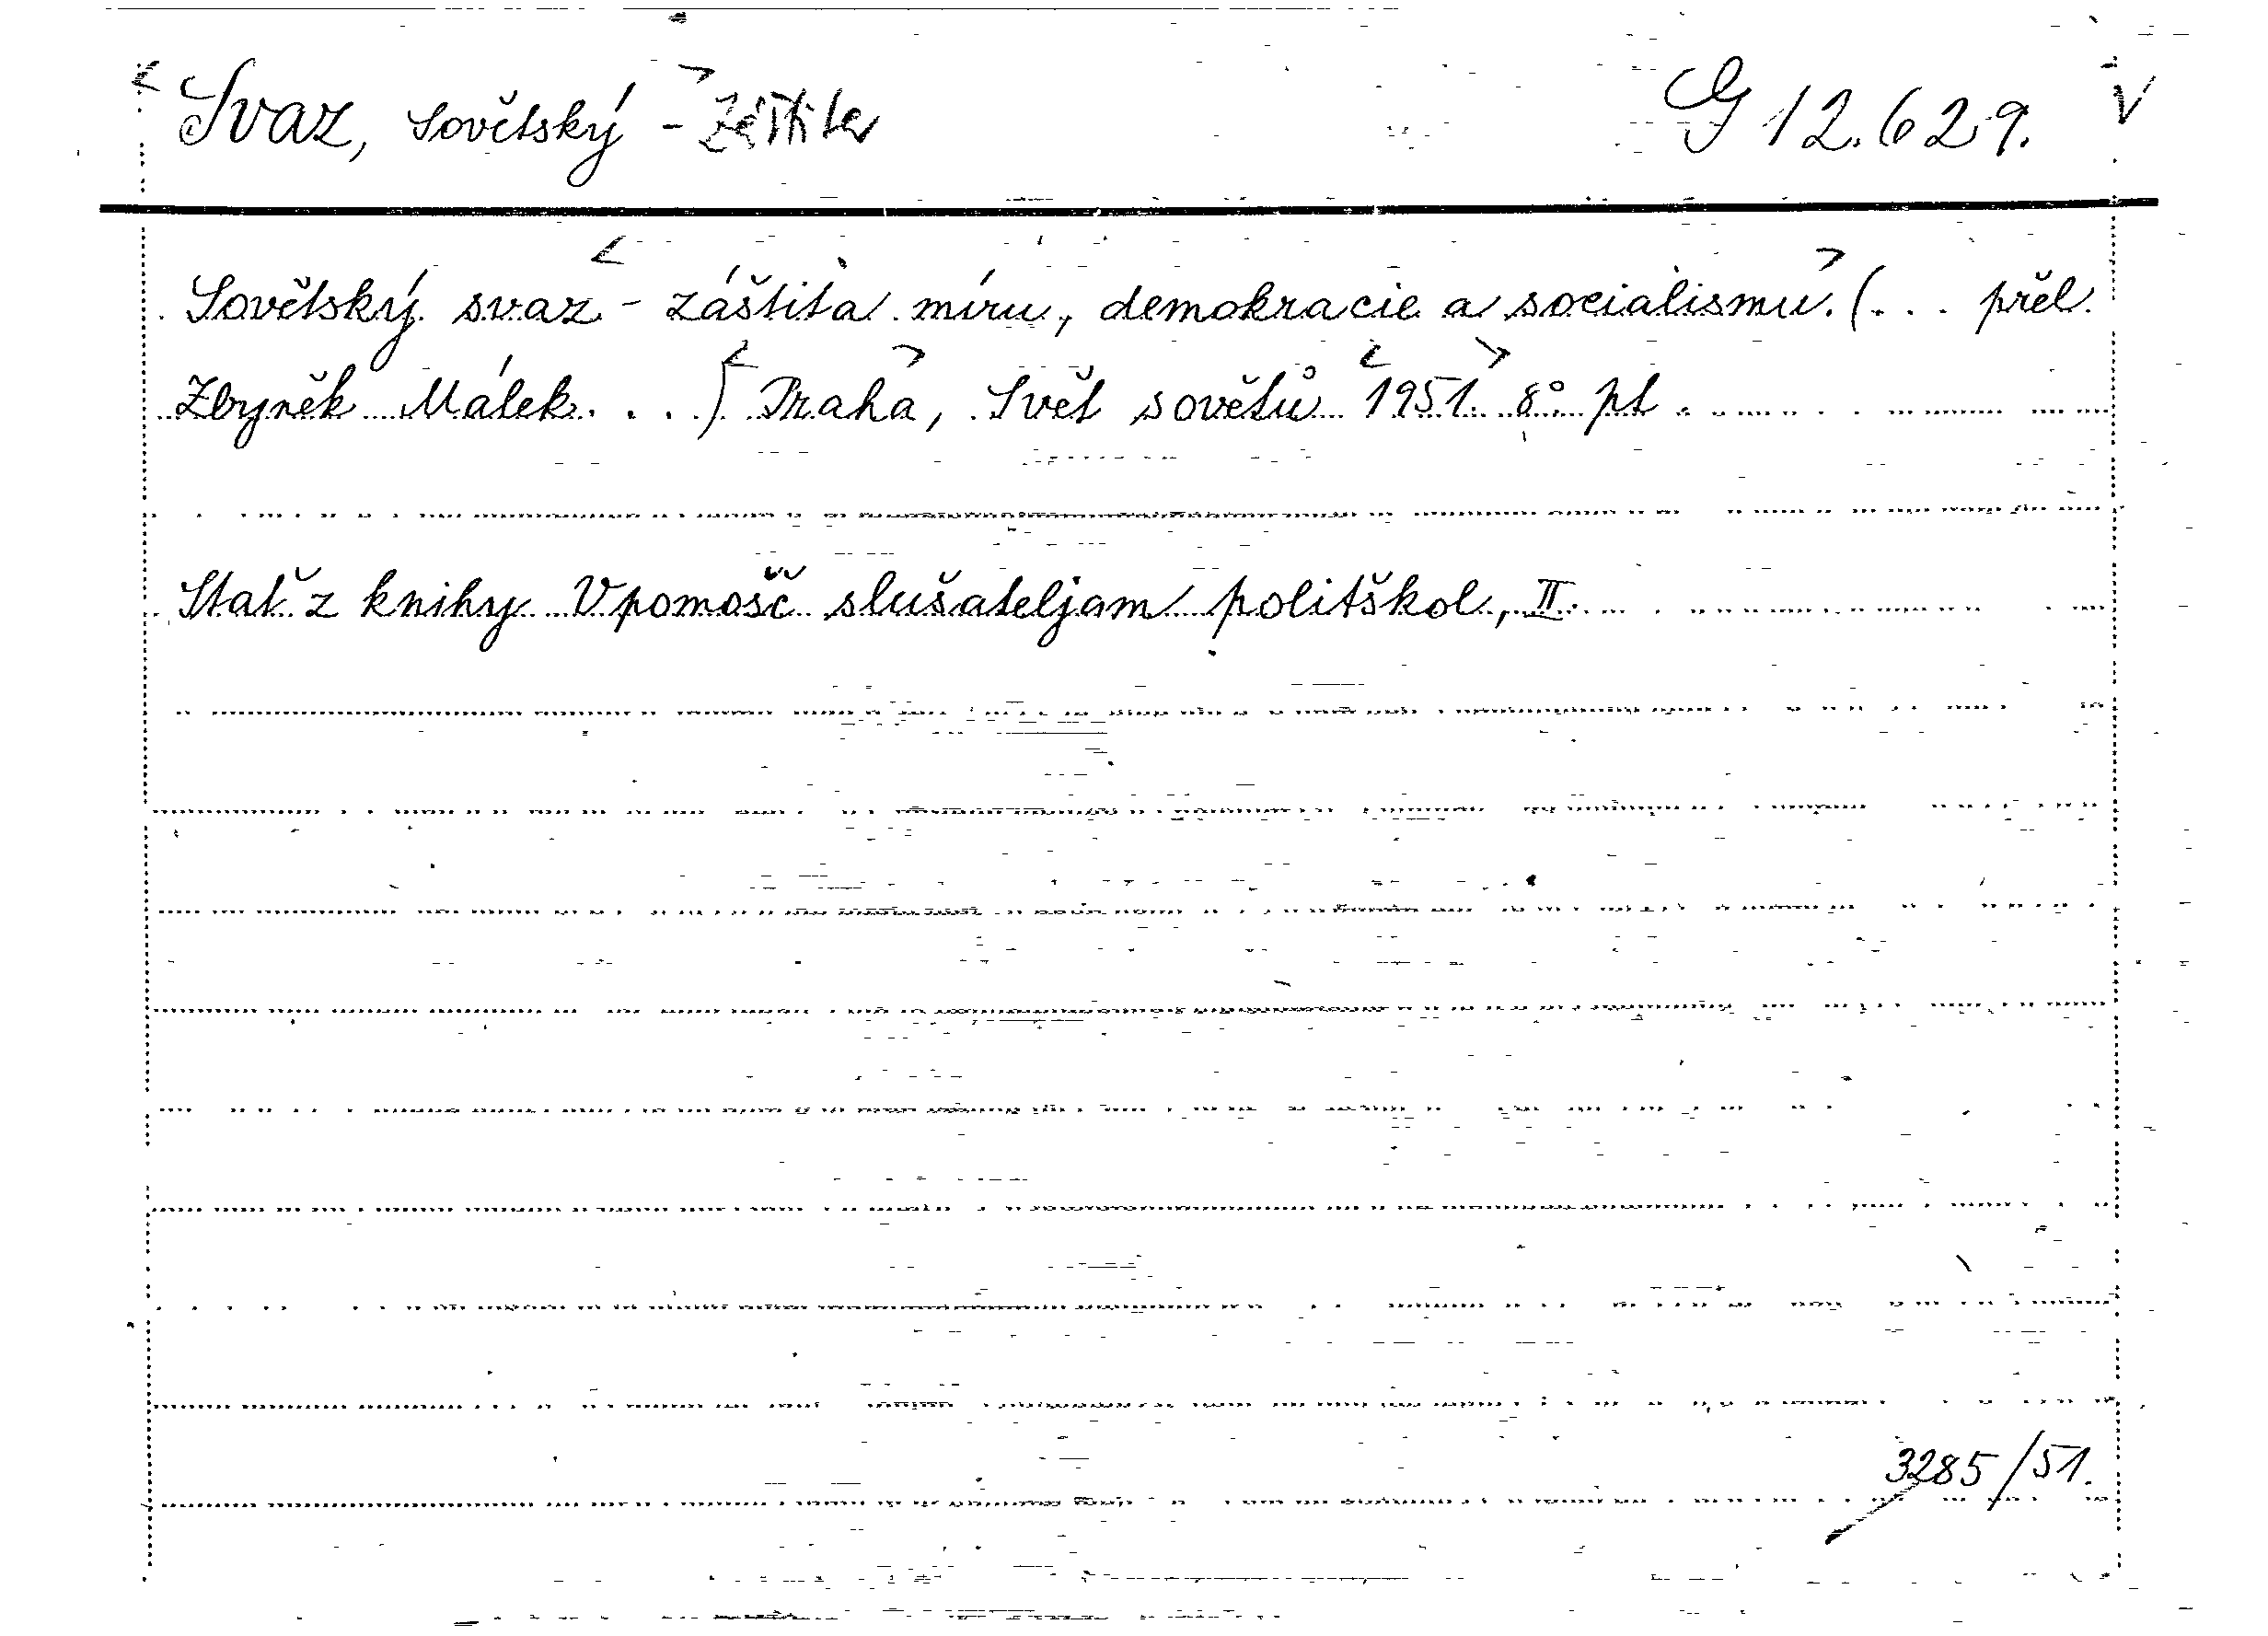 Svaz, Sovětský - Záštita G 12.629. V
Sovětský svaz - záštita míru, demokracie a socialismu. (... přel.
Zbyněk Málek...) Praha, Svět sovětů 1951. 8° pt.
Stať z knihy V pomošč slušateljam politškol, II.
3285/51.